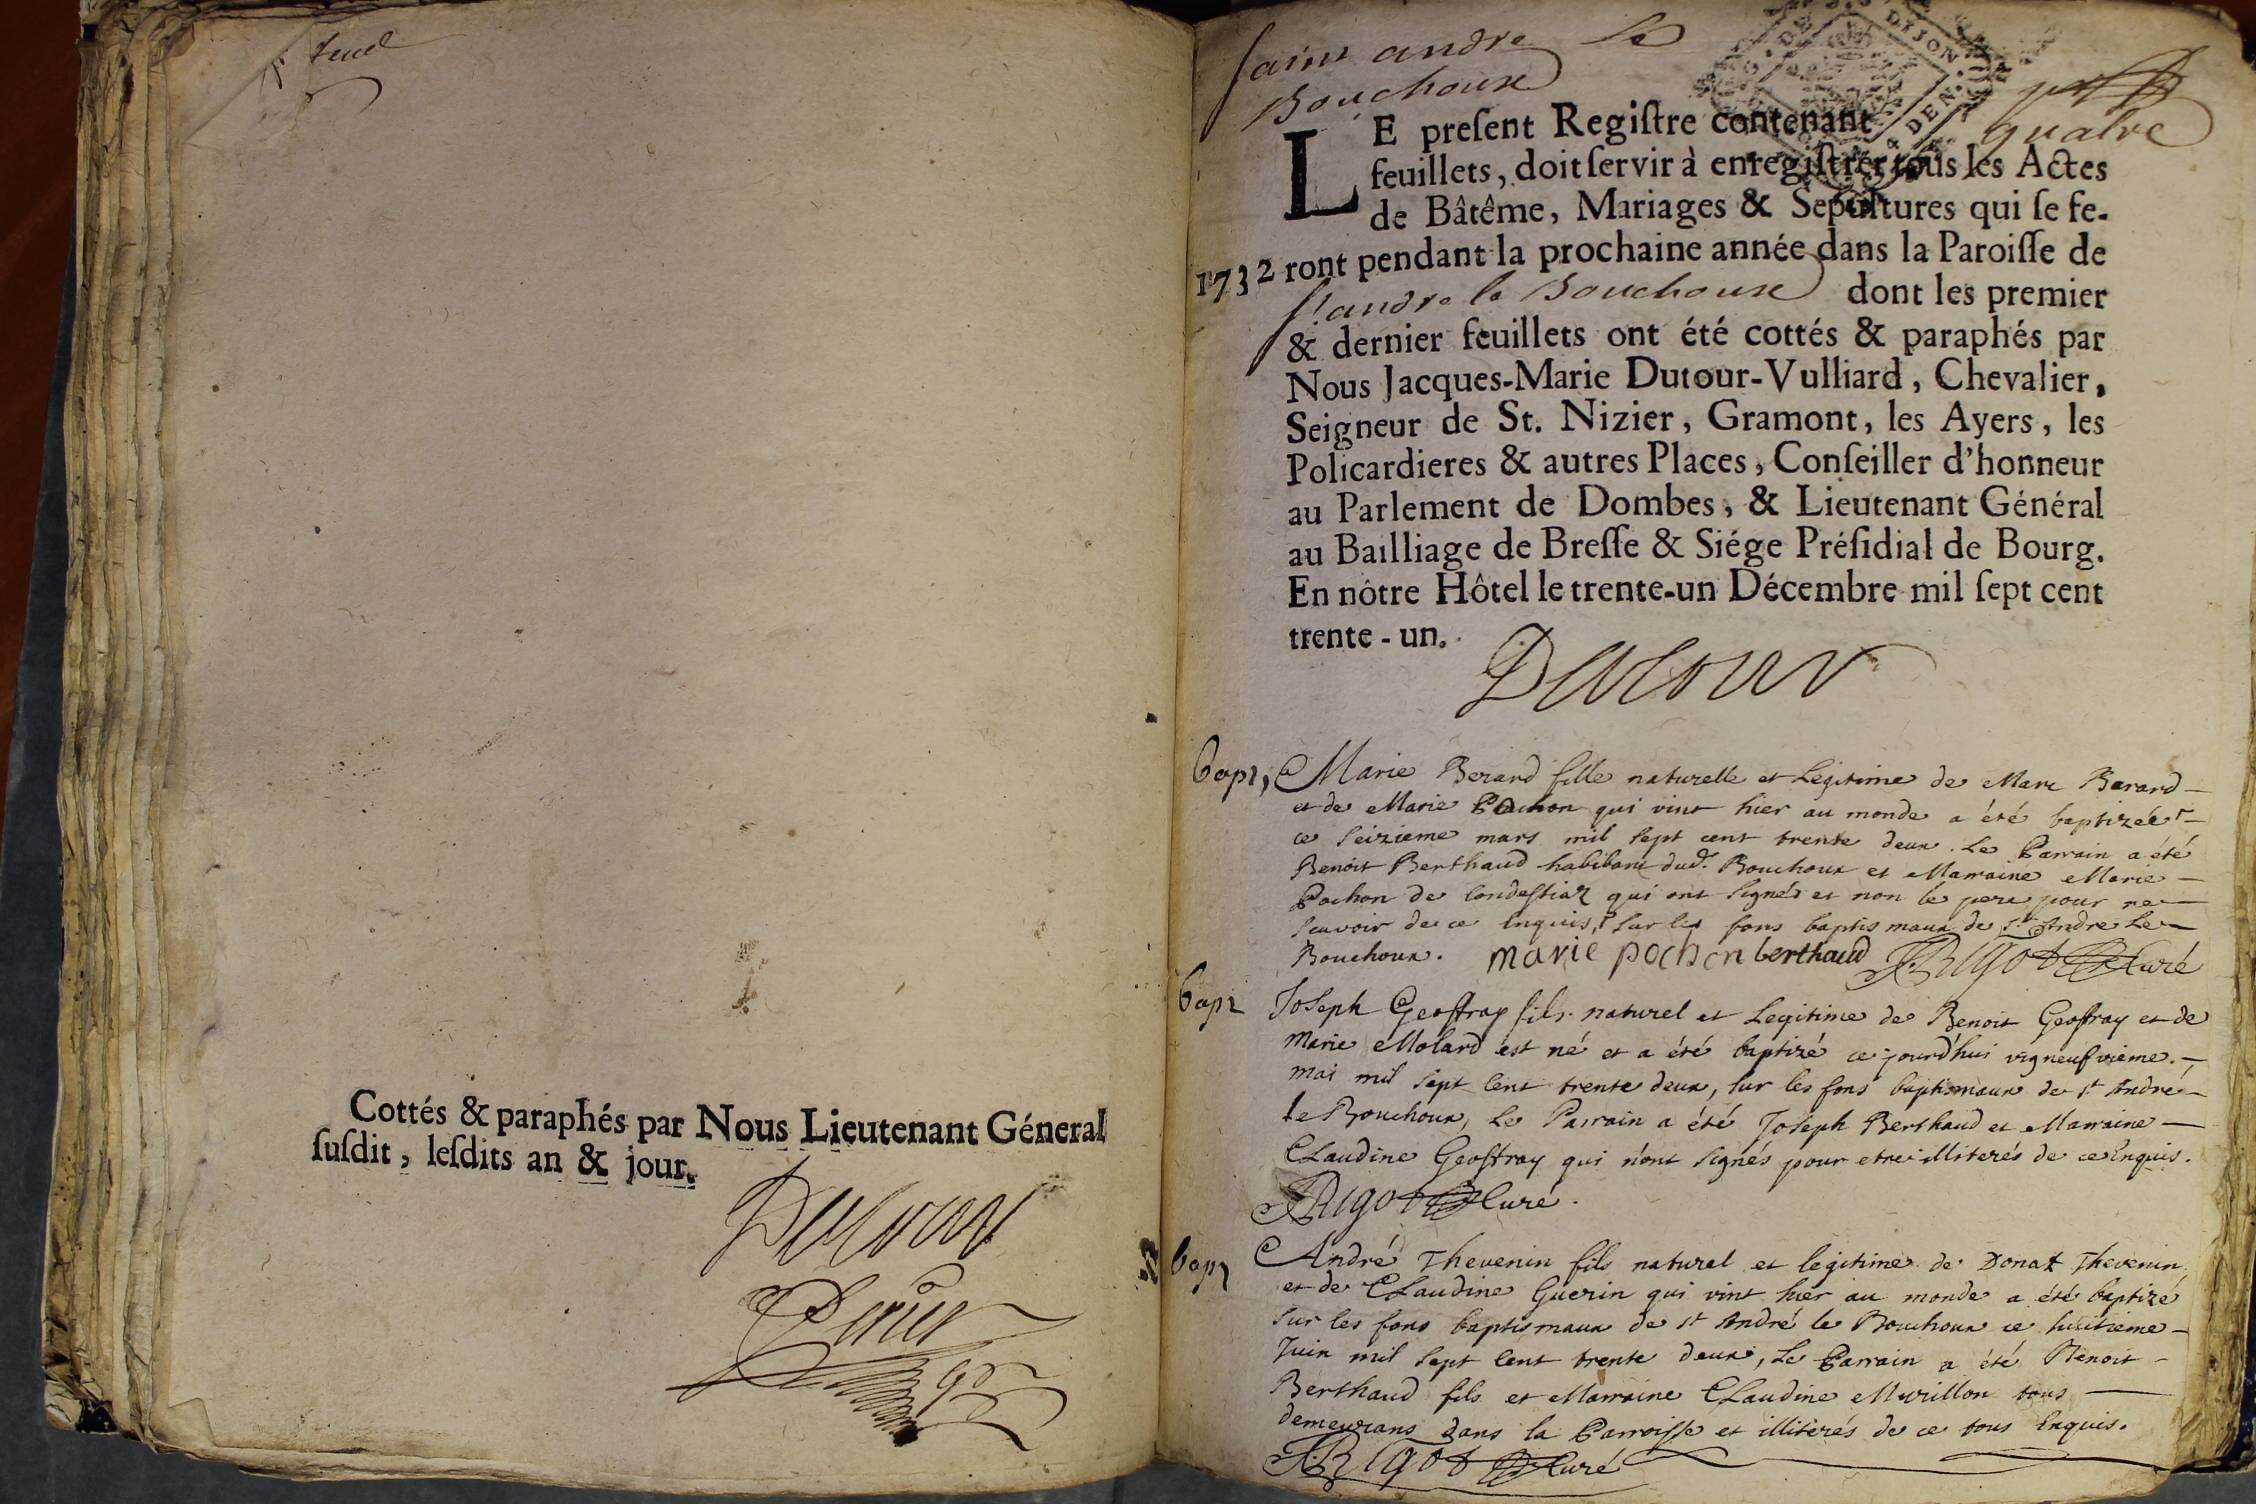 Cottés & paraphés par Nous Lieutenant Géneral
suſdit, leſdits an & jour.
Dutour
Perier
saint andre Le
Bouchoux
quatre
LE preſent Regiſtre contenant
feuillets, doit ſervir à enregiſtrer tous les Actes
de Bâtême, Mariages & Sepultures qui ſe fe-
1732 ront pendant la prochaine année dans la Paroiſſe de
st. andre le Bouchoux dont les premier
& dernier feuillets ont été cottés & paraphés par
Nous Jacques-Marie Dutour-Vulliard, Chevalier,
Seigneur de St. Nizier, Gramont, les Ayers, les
Policardieres & autres Places, Conſeiller d'honneur
au Parlement de Dombes, & Lieutenant Général
au Bailliage de Breſſe & Siége Préſidial de Bourg.
En nôtre Hôtel le trente-un Décembre mil ſept cent
trente-un.
Dutour
bapt, Marie Berard fille naturelle et Legitime de Marc Berard
et de Marie Pochon qui vint hier au monde a été baptizée
ce seizieme mars mil sept cent trente deux. Le Parrain a été
Benoit Berthaud habitant dud. Bouchoux et Marraine Marie
Pochon de Condessiat qui ont signés et non le pere pour ne
scavoir de ce Enquis, sur les fons baptismaux de st Andre Le
Bouchoux. marie pochon berthaud Rigot Curé
bapt Joseph Geoffray fils naturel et Legitime de Benoit Geoffray et de
Marie Molard est né et a été baptizé ce jourd'hui vigneufvieme
mai mil sept Cent trente deux, sur les fons baptismaux de st André
le Bouchoux, Le Parrain a été Joseph Berthaud et Marraine
Claudine Geoffray qui n'ont signés pour etre illiterés de ce Enquis.
Rigot Curé.
bapt André Thevenin fils naturel et legitime de Donat Thevenin
et de Claudine Guerin qui vint hier au monde a été baptizé
sur les fons baptismaux de st André le Bouchoux ce huitieme
Juin mil sept Cent trente deux, Le Parrain a été Benoit
Berthaud fils et Marraine Claudine Murillon tous
demeurans dans la Parroisse et illiterés de ce tous Enquis.
Rigot Curé